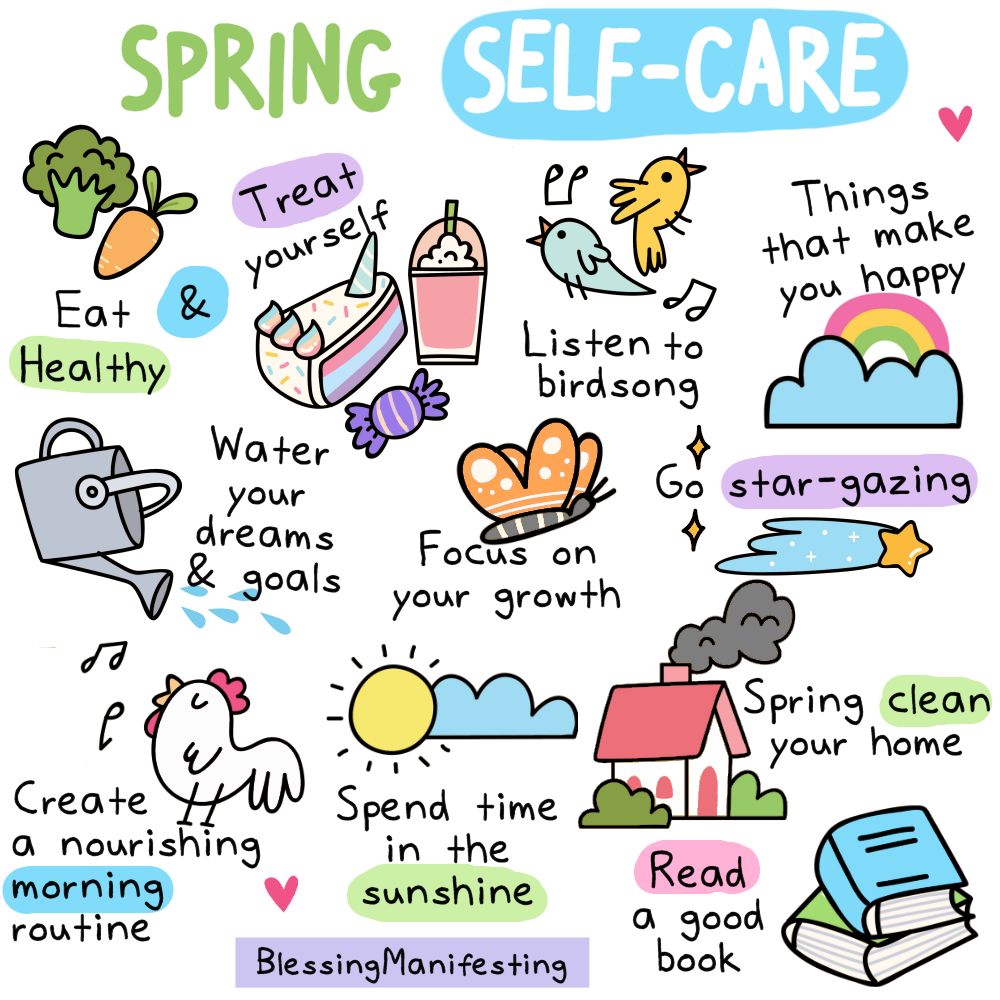 SPRING SELF-CARE
Eat
Healthy
&
Treat
yourself
Listen to
birdsong
Things
that make
you happy
Water
your
dreams
& goals
Focus on
your growth
Go star-gazing
Create
a nourishing
morning
routine
Spend time
in the
sunshine
Spring clean
your home
Read
a good
book
BlessingManifesting